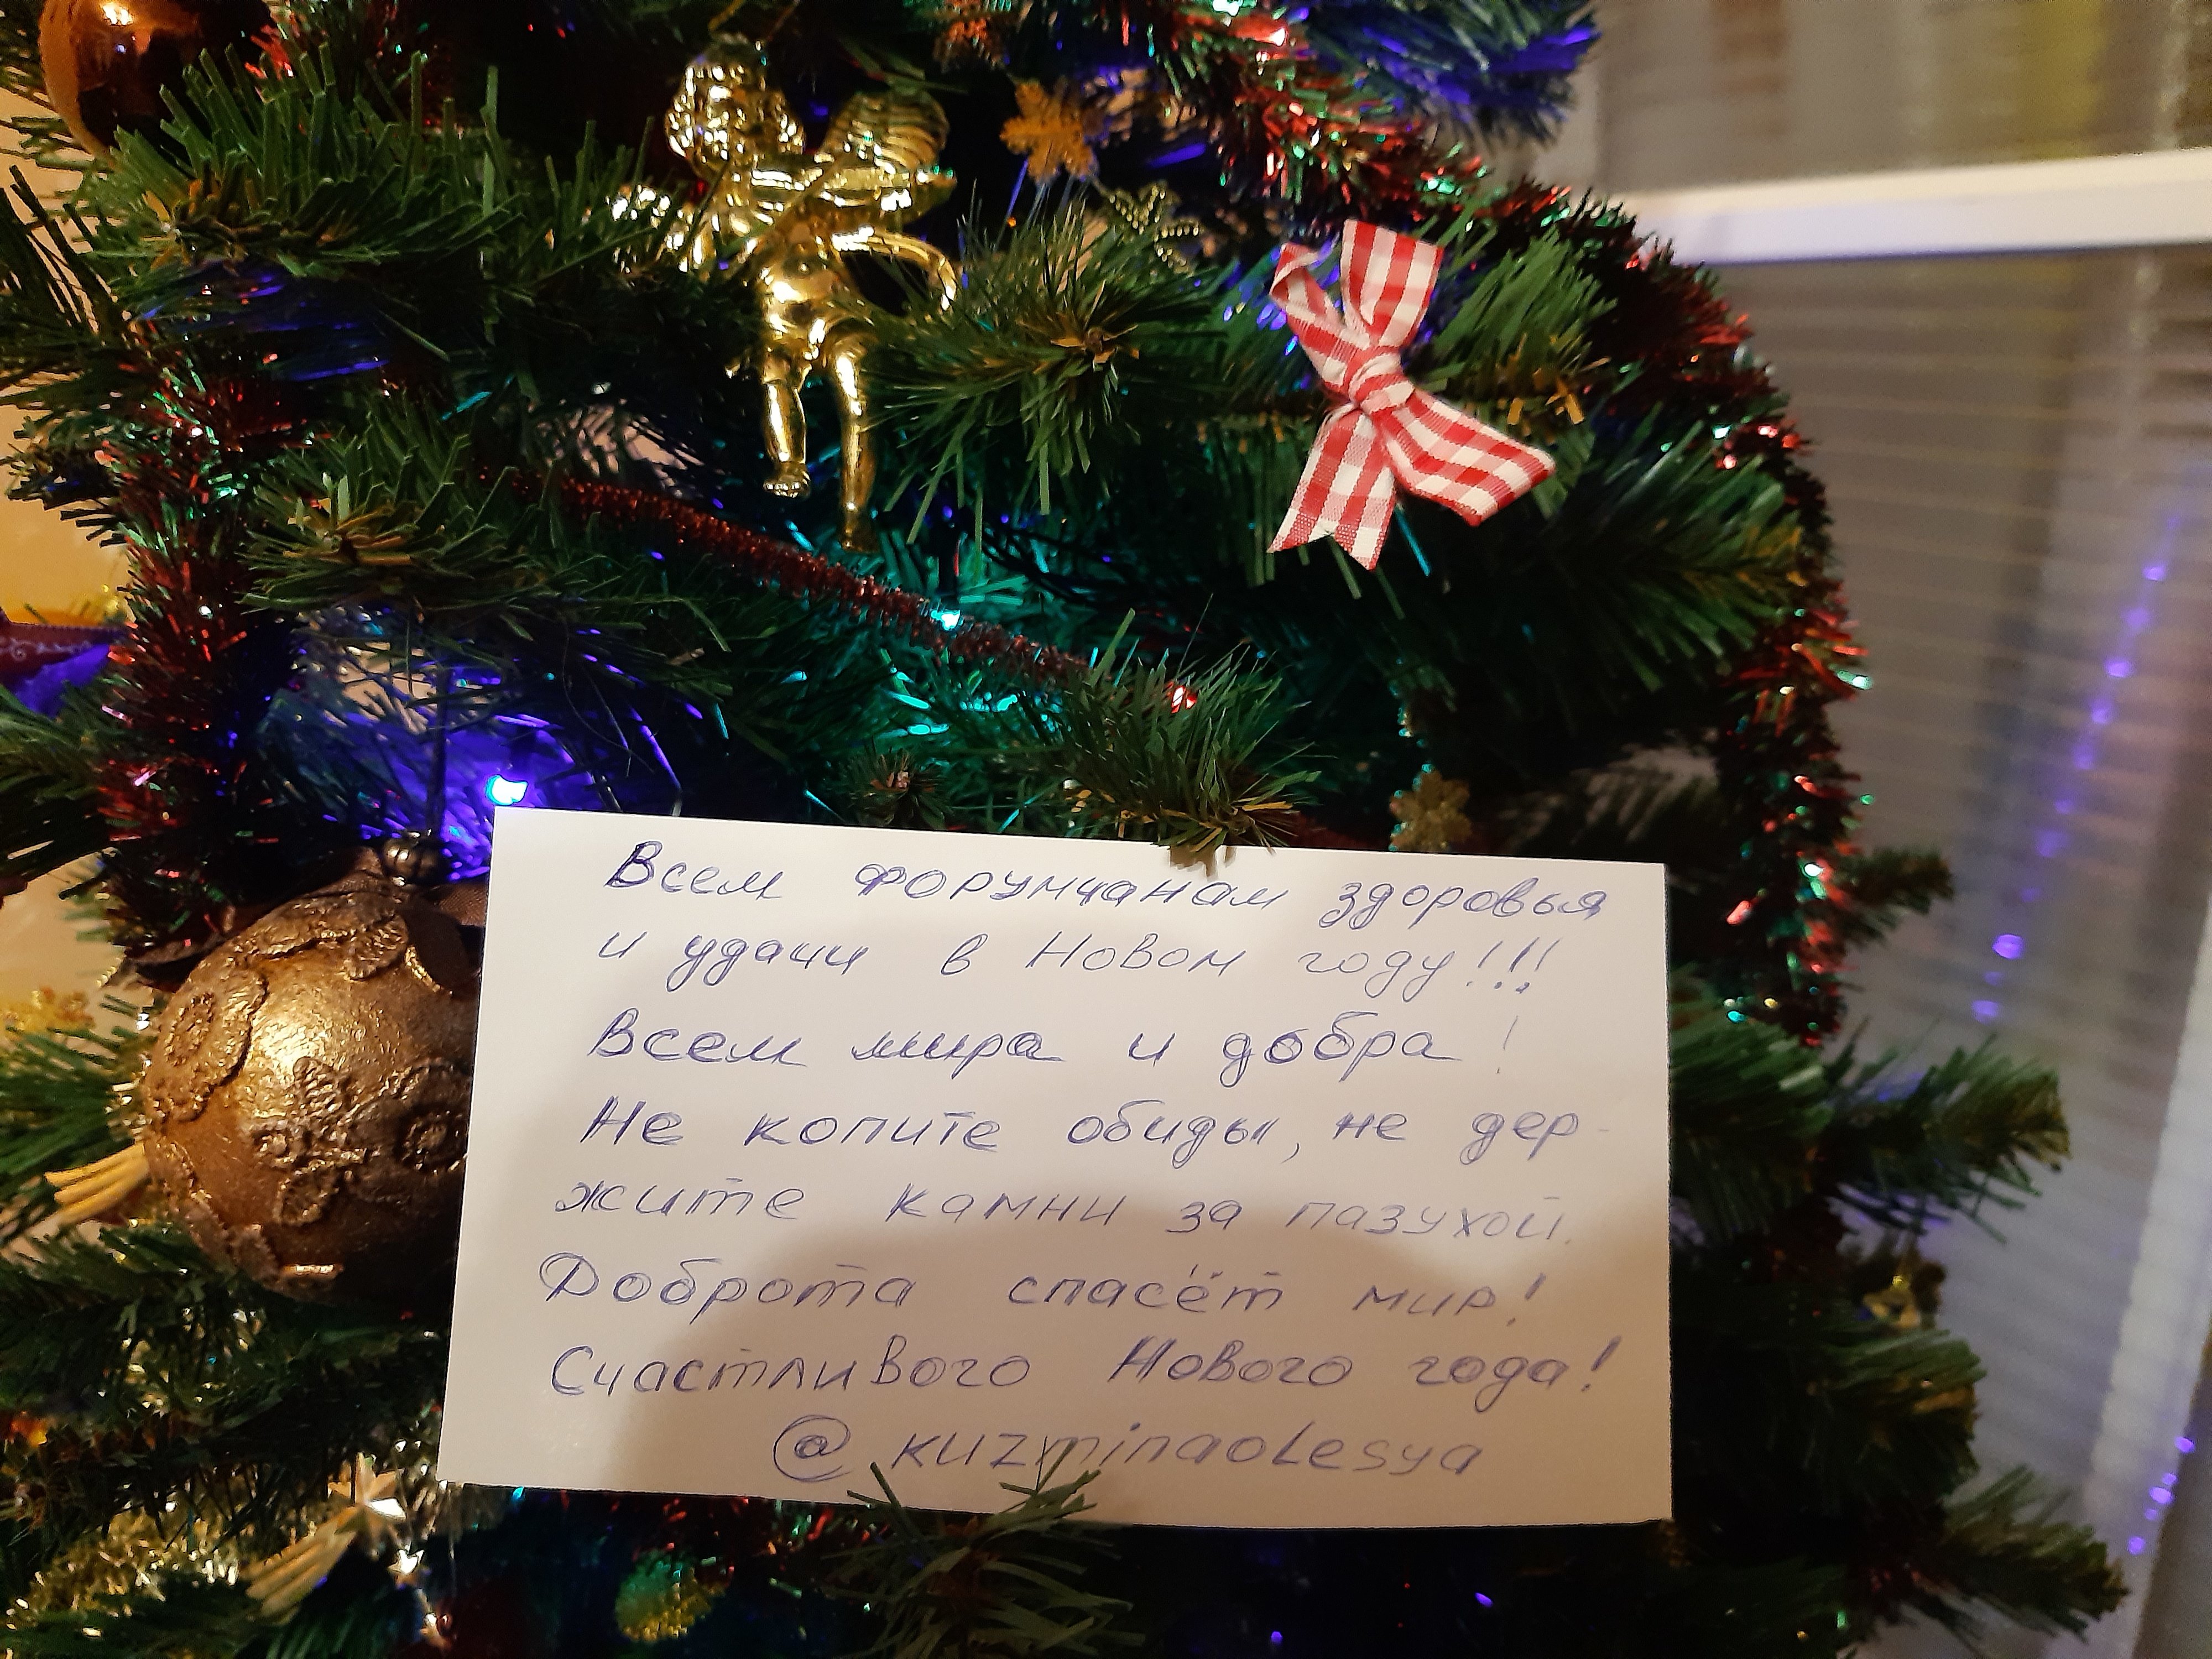 Всем форумчанам здоровья
и удачи в Новом году!!!
Всем мира и добра!
Не копите обиды, не дер-
жите камни за пазухой.
Доброта спасёт мир!
Счастливого Нового года!
@kuzminaolesya